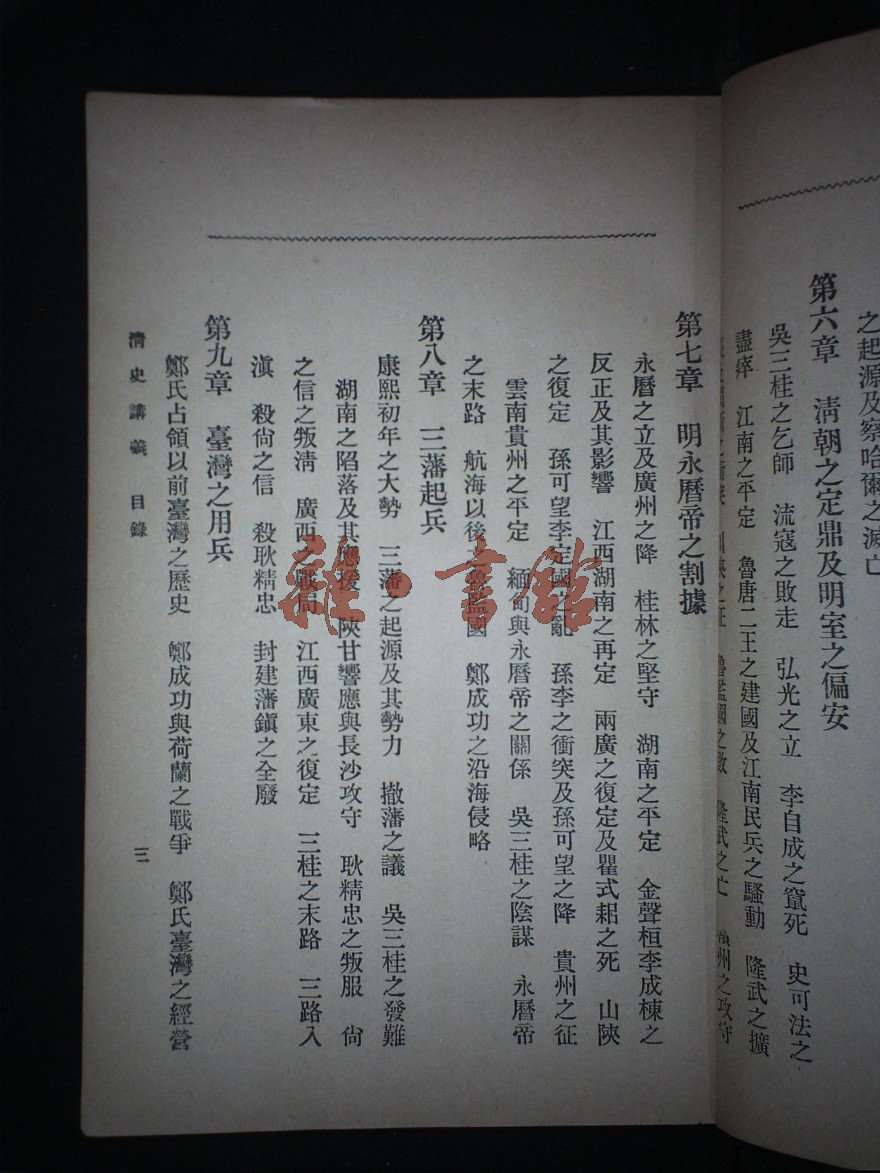 之起源及察哈爾之滅亡
第六章　淸朝之定鼎及明室之偏安
吳三桂之乞師　流寇之敗走　弘光之立　李自成之竄死　史可法之
盡瘁　江南之平定　魯唐二王之建國及江南民兵之騷動　隆武之擴
魯監國之敗　隆武之亡　州之攻守
第七章　明永曆帝之割據
永曆之立及廣州之降　桂林之堅守　湖南之平定　金聲桓李成棟之
反正及其影響　江西湖南之再定　兩廣之復定及瞿式耜之死　山陝
之復定　孫可望李定國之亂　孫李之衝突及孫可望之降　貴州之征
雲南貴州之平定　緬甸與永曆帝之關係　吳三桂之陰謀　永曆帝
之末路　航海以後之魯監國　鄭成功之沿海侵略
第八章　三藩起兵
康熙初年之大勢　三藩之起源及其勢力　撤藩之議　吳三桂之發難
湖南之陷落及其應援　陝甘響應與長沙攻守　耿精忠之叛服　尙
之信之叛淸　廣西之戰局　江西廣東之復定　三桂之末路　三路入
滇　殺尙之信　殺耿精忠　封建藩鎭之全廢
第九章　臺灣之用兵
鄭氏占領以前臺灣之歷史　鄭成功與荷蘭之戰爭　鄭氏臺灣之經營
淸史講義　目錄
三
雜·書館